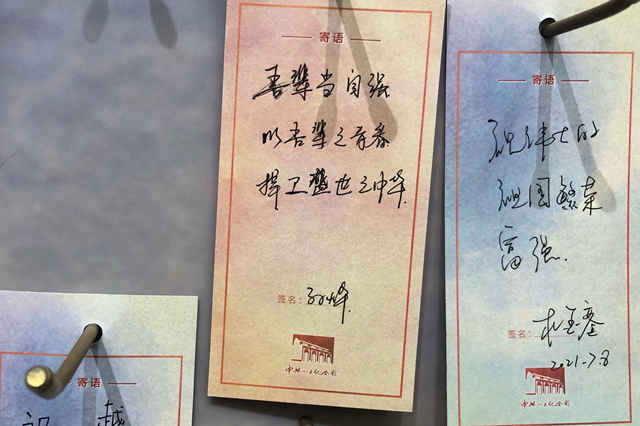 寄语
吾辈当自强
以吾辈之青春
捍卫盛世之中华.
签名：孙
中共一大纪念馆
寄语
祝伟大的
祖国繁荣
富强.
签名：
2021-7.8
中共一大纪念馆
寄语
越